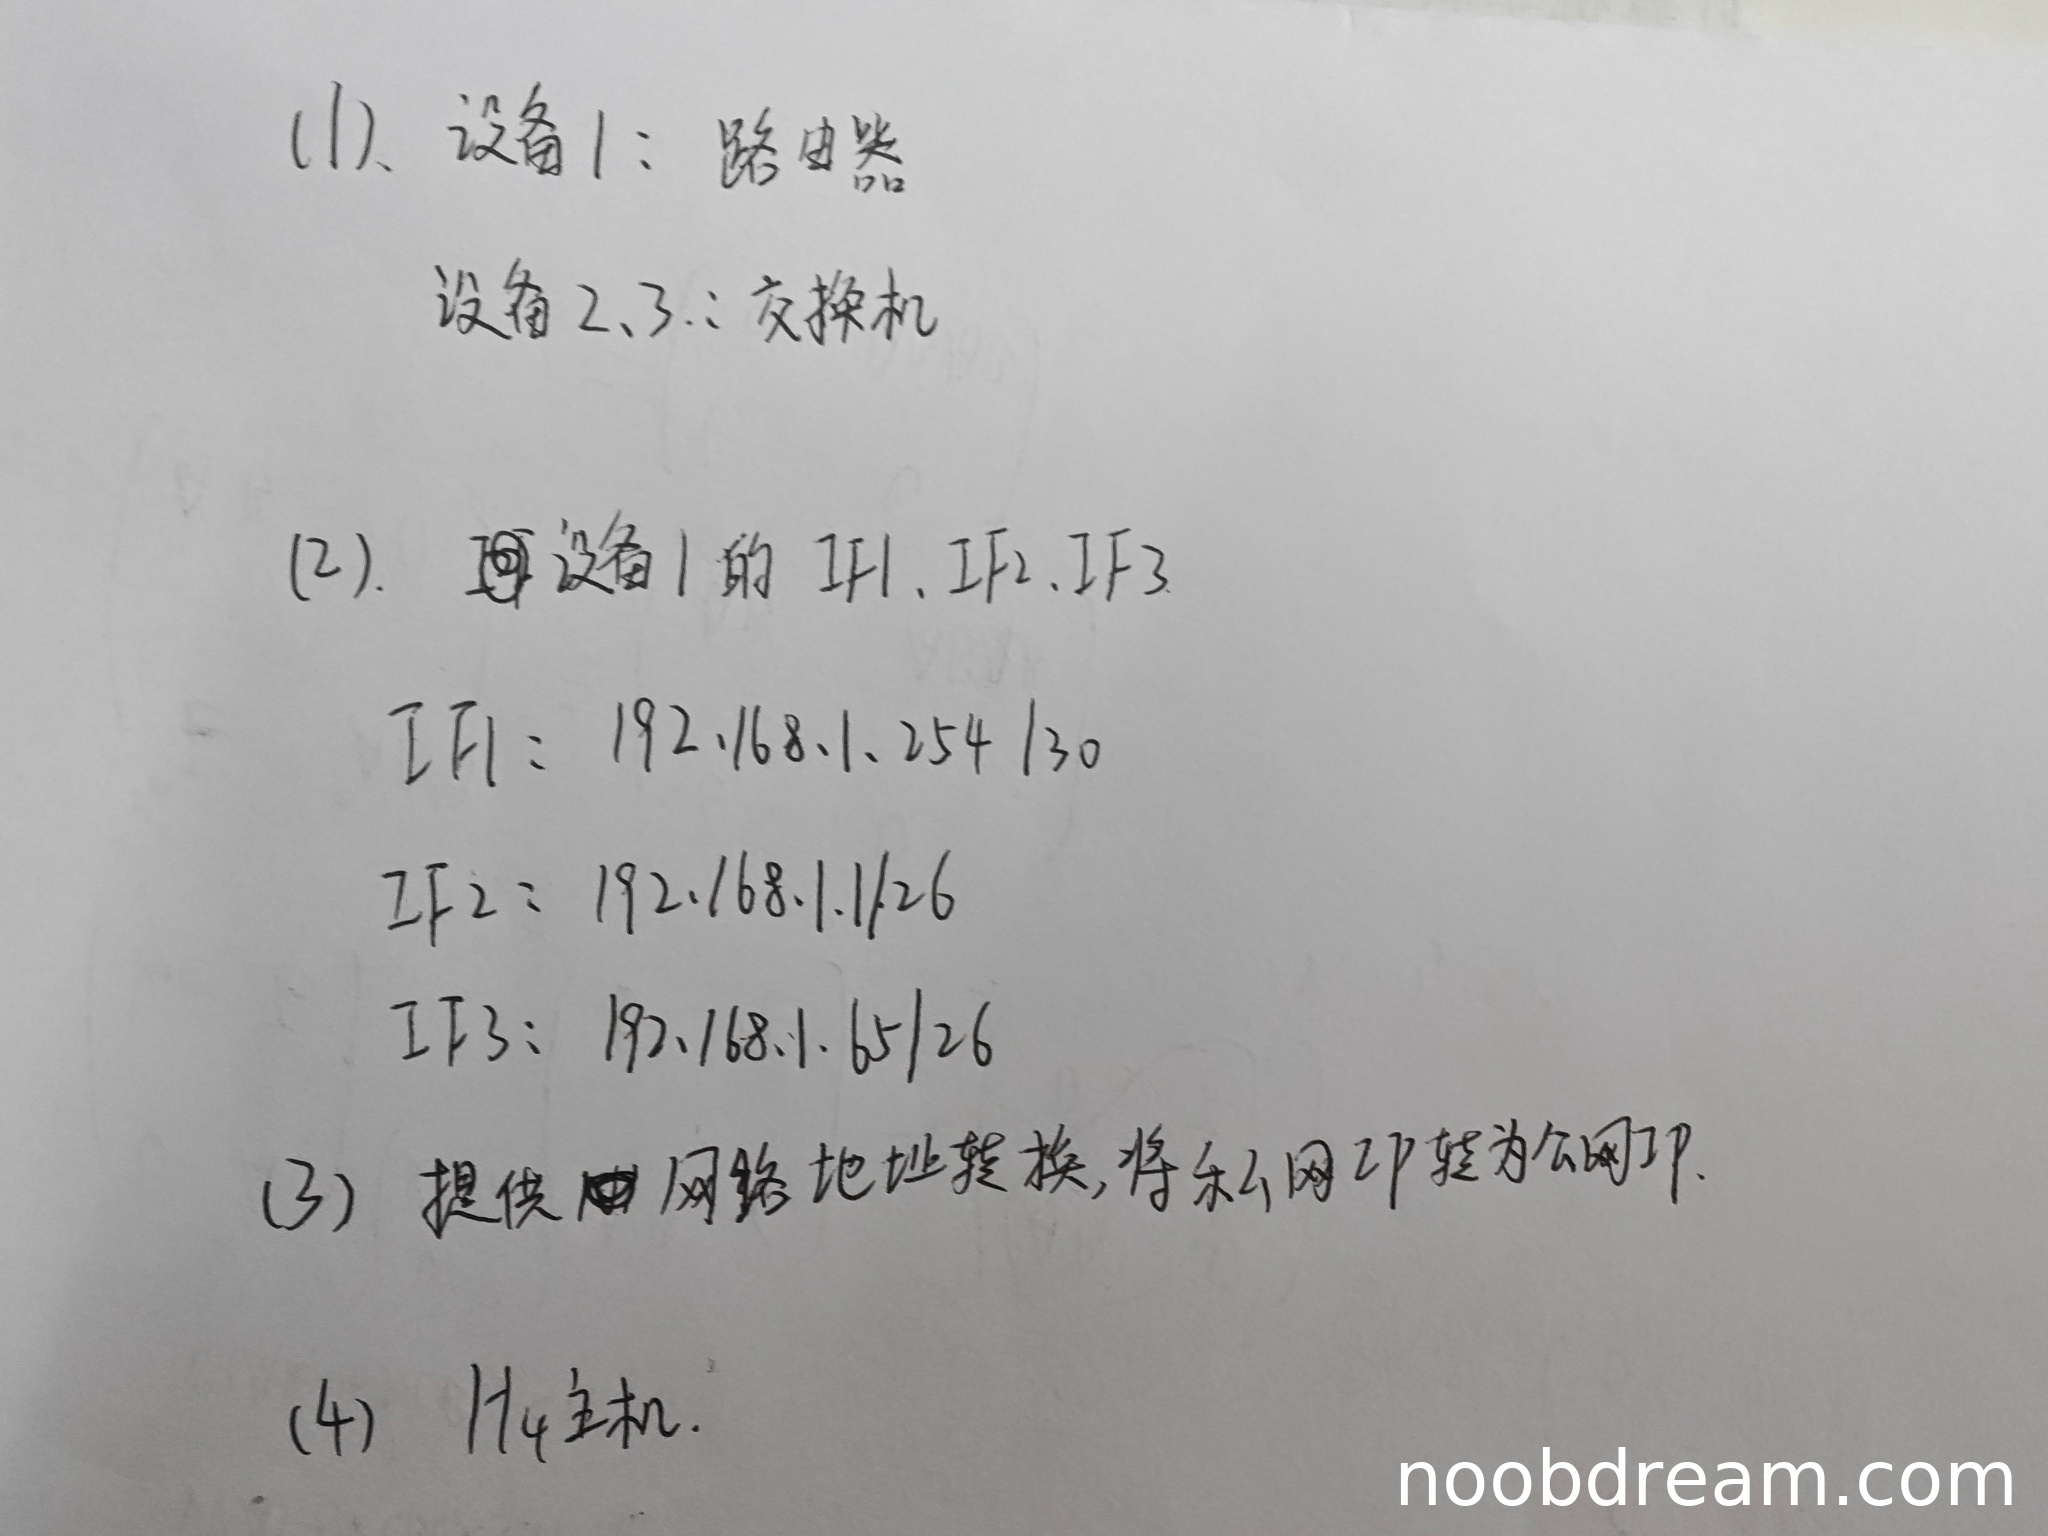 (1)、设备1：路由器
设备2、3：交换机
(2). 设备1的 IF1、IF2、IF3
IF1：192.168.1.254/30
IF2：192.168.1.1/26
IF3：192.168.1.65/26
(3) 提供 网络地址转换,将私网IP转为公网IP.
(4) H4主机.
noobdream.com